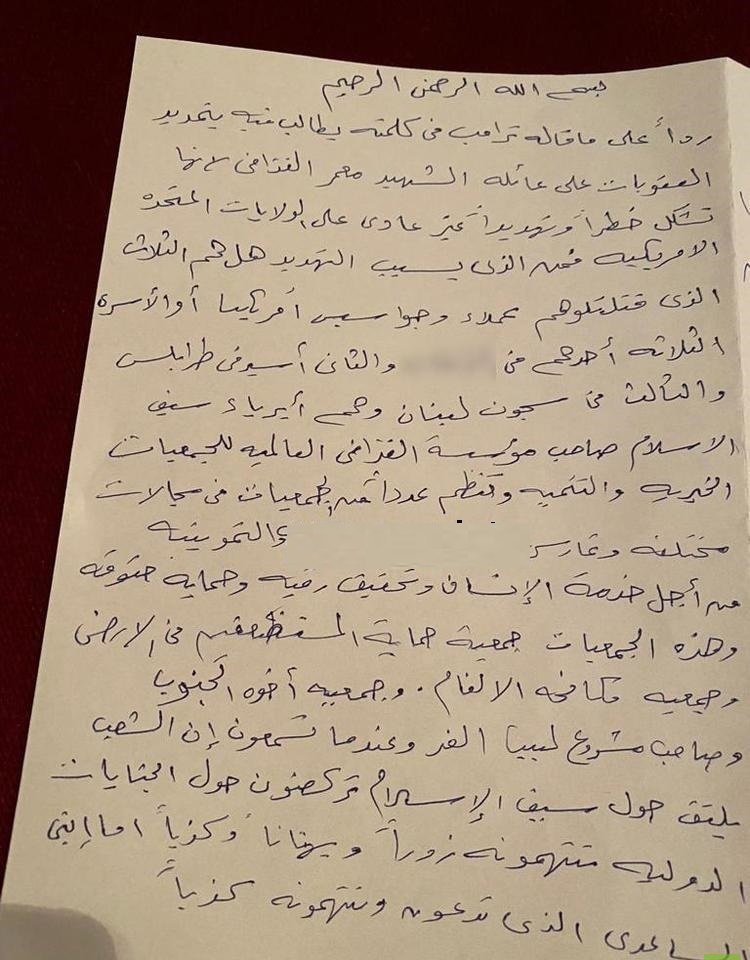 بسم الله الرحمن الرحيم
رداً على ماقاله ترامب فى كلمته يطالب فيه بتمديد
العقوبات على عائله الشهيد معمر القذافى لانها
تشكل خطراً وتهديداً غير عادى على الولايات المتحده
الامريكيه فمن الذى يسبب التهديد هل هم الثلاث
الذى قتلتلوهم عملاء وجواسيس أمريكيا أوالأسره
الثلاثه أحدهم فى والثانى أسير فى طرابلس
والثالث فى سجون لبنان وهم أبرياء سيف
الاسلام صاحب مؤسسة القذافى العالميه للجمعيات
الخيريه والتنميه وتنظم عدداً من الجمعيات فى مجالات
مختلفه وتمارس والتموينيه
من أجل خدمة الإنسان وتحقيق رقيه وحمايه حقوقه
وهذه الجمعيات جمعية حماية المستضعفين فى الارض
وجمعيه مكافحه الالغام . وجمعيه أخوه الجنوب
وصاحب مشروع ليبيا الغد وعندما تسمعون إن الشعب
يلتف حول سيف الإسلام تركضون حول الجنايات
الدوليه تتهمونه زوراً وبهتاناً وكذباً اما إبنى
الساعدى الذى تدعون وتتهمونه كذباً